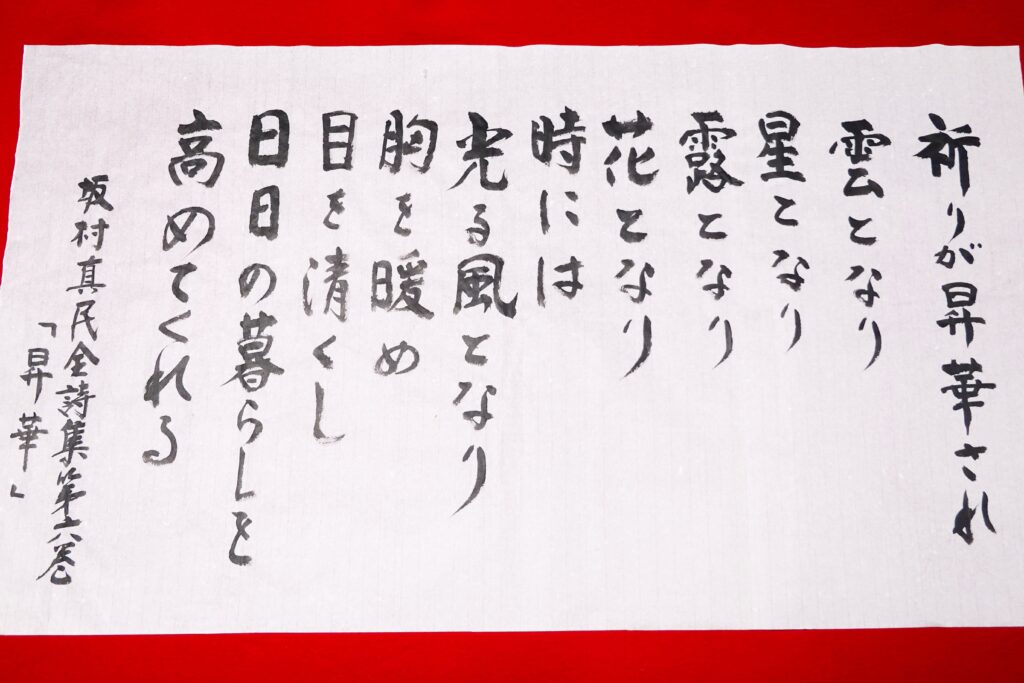 祈りが昇華され
雲となり
星となり
露となり
花となり
時には
光る風となり
胸を暖め
目を清くし
日日の暮らしを
高めてくれる
坂村真民全詩集第六巻
「昇華」